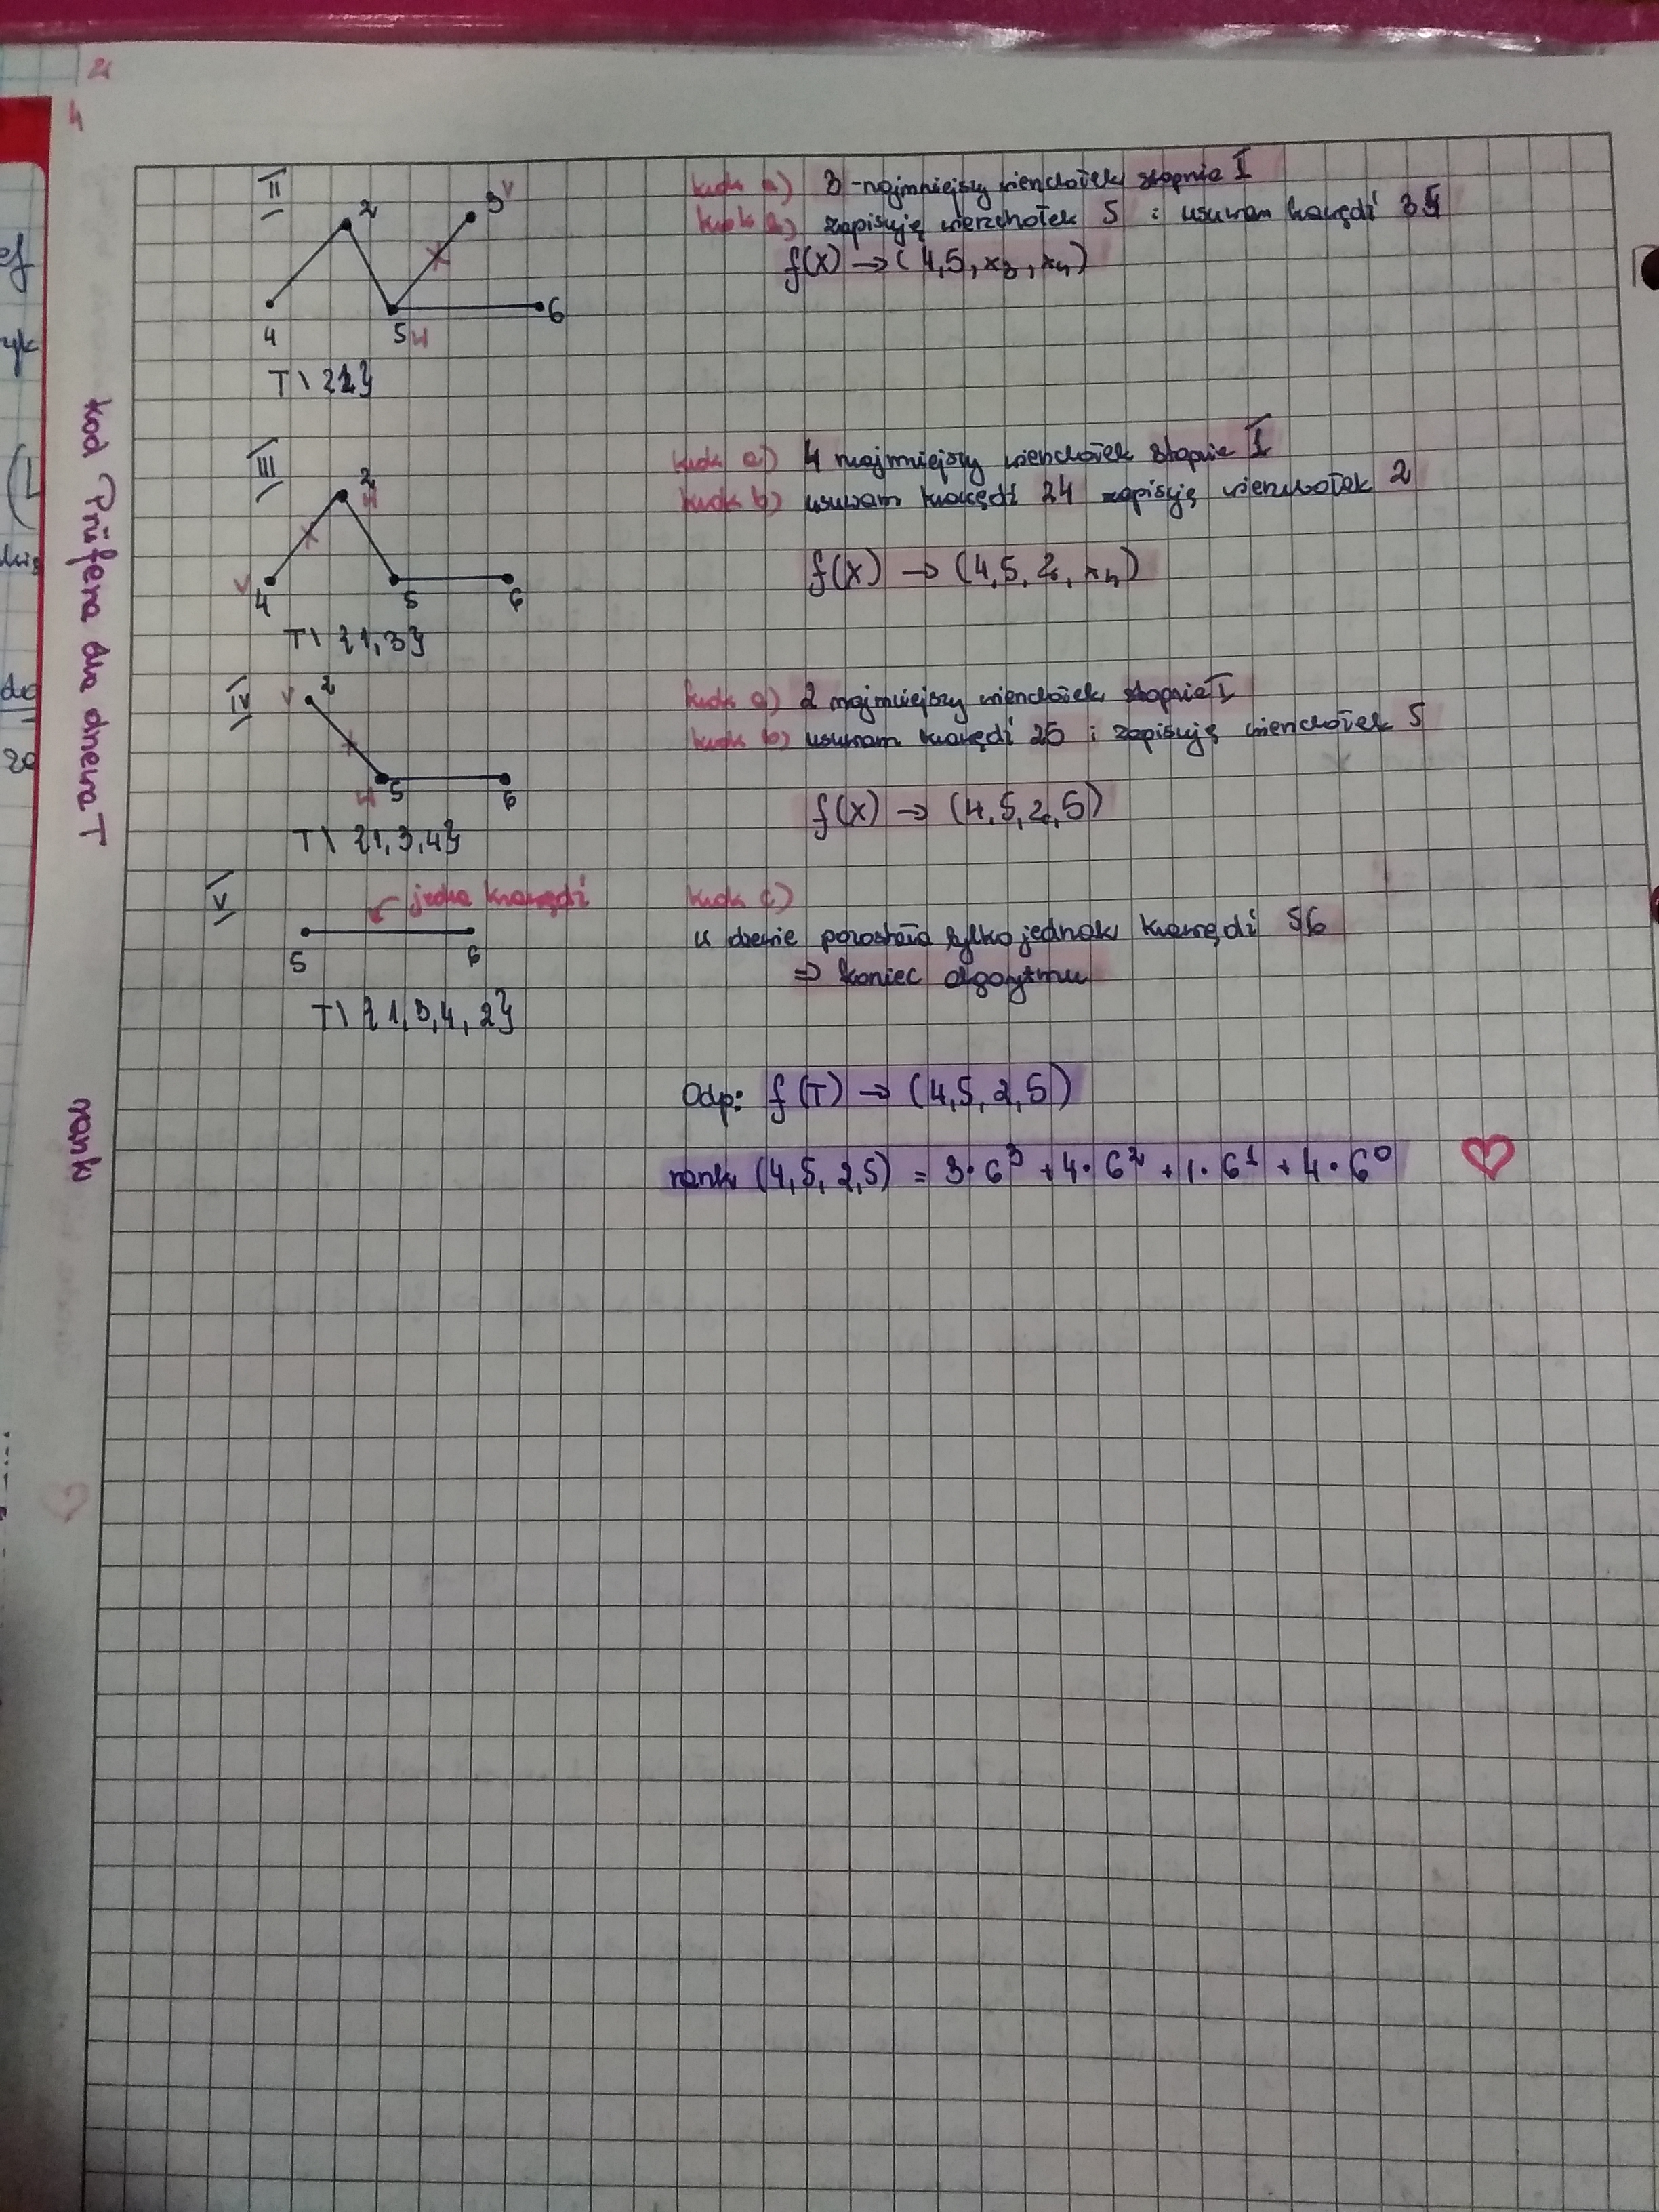 II
2
3 v
4
5 w
6
T\{1}
krok a) 3 - najmniejszy wierzchołek stopnia I
krok b) zapisuję wierzchołek 5 i usuwam krawędź 35
f(x) → (4,5,x₃,x₄)
III
2
w
v
4
5
6
T\{1,3}
krok a) 4 najmniejszy wierzchołek stopnia I
krok b) usuwam krawędź 24 zapisuję wierzchołek 2
f(x) → (4,5,2,x₄)
IV
v 2
w 5
6
T\{1,3,4}
krok a) 2 najmniejszy wierzchołek stopnia I
krok b) usuwam krawędź 25 i zapisuję wierzchołek 5
f(x) → (4,5,2,5)
V
jedna krawędź
5
6
T\{1,3,4,2}
krok c)
w drzewie pozostała tylko jedna krawędź 56
⇒ koniec algorytmu
Odp: f(T) → (4,5,2,5)
rank (4,5,2,5) = 3·6³ + 4·6² + 1·6¹ + 4·6⁰
kod Prüfera dla drzewa T
rank